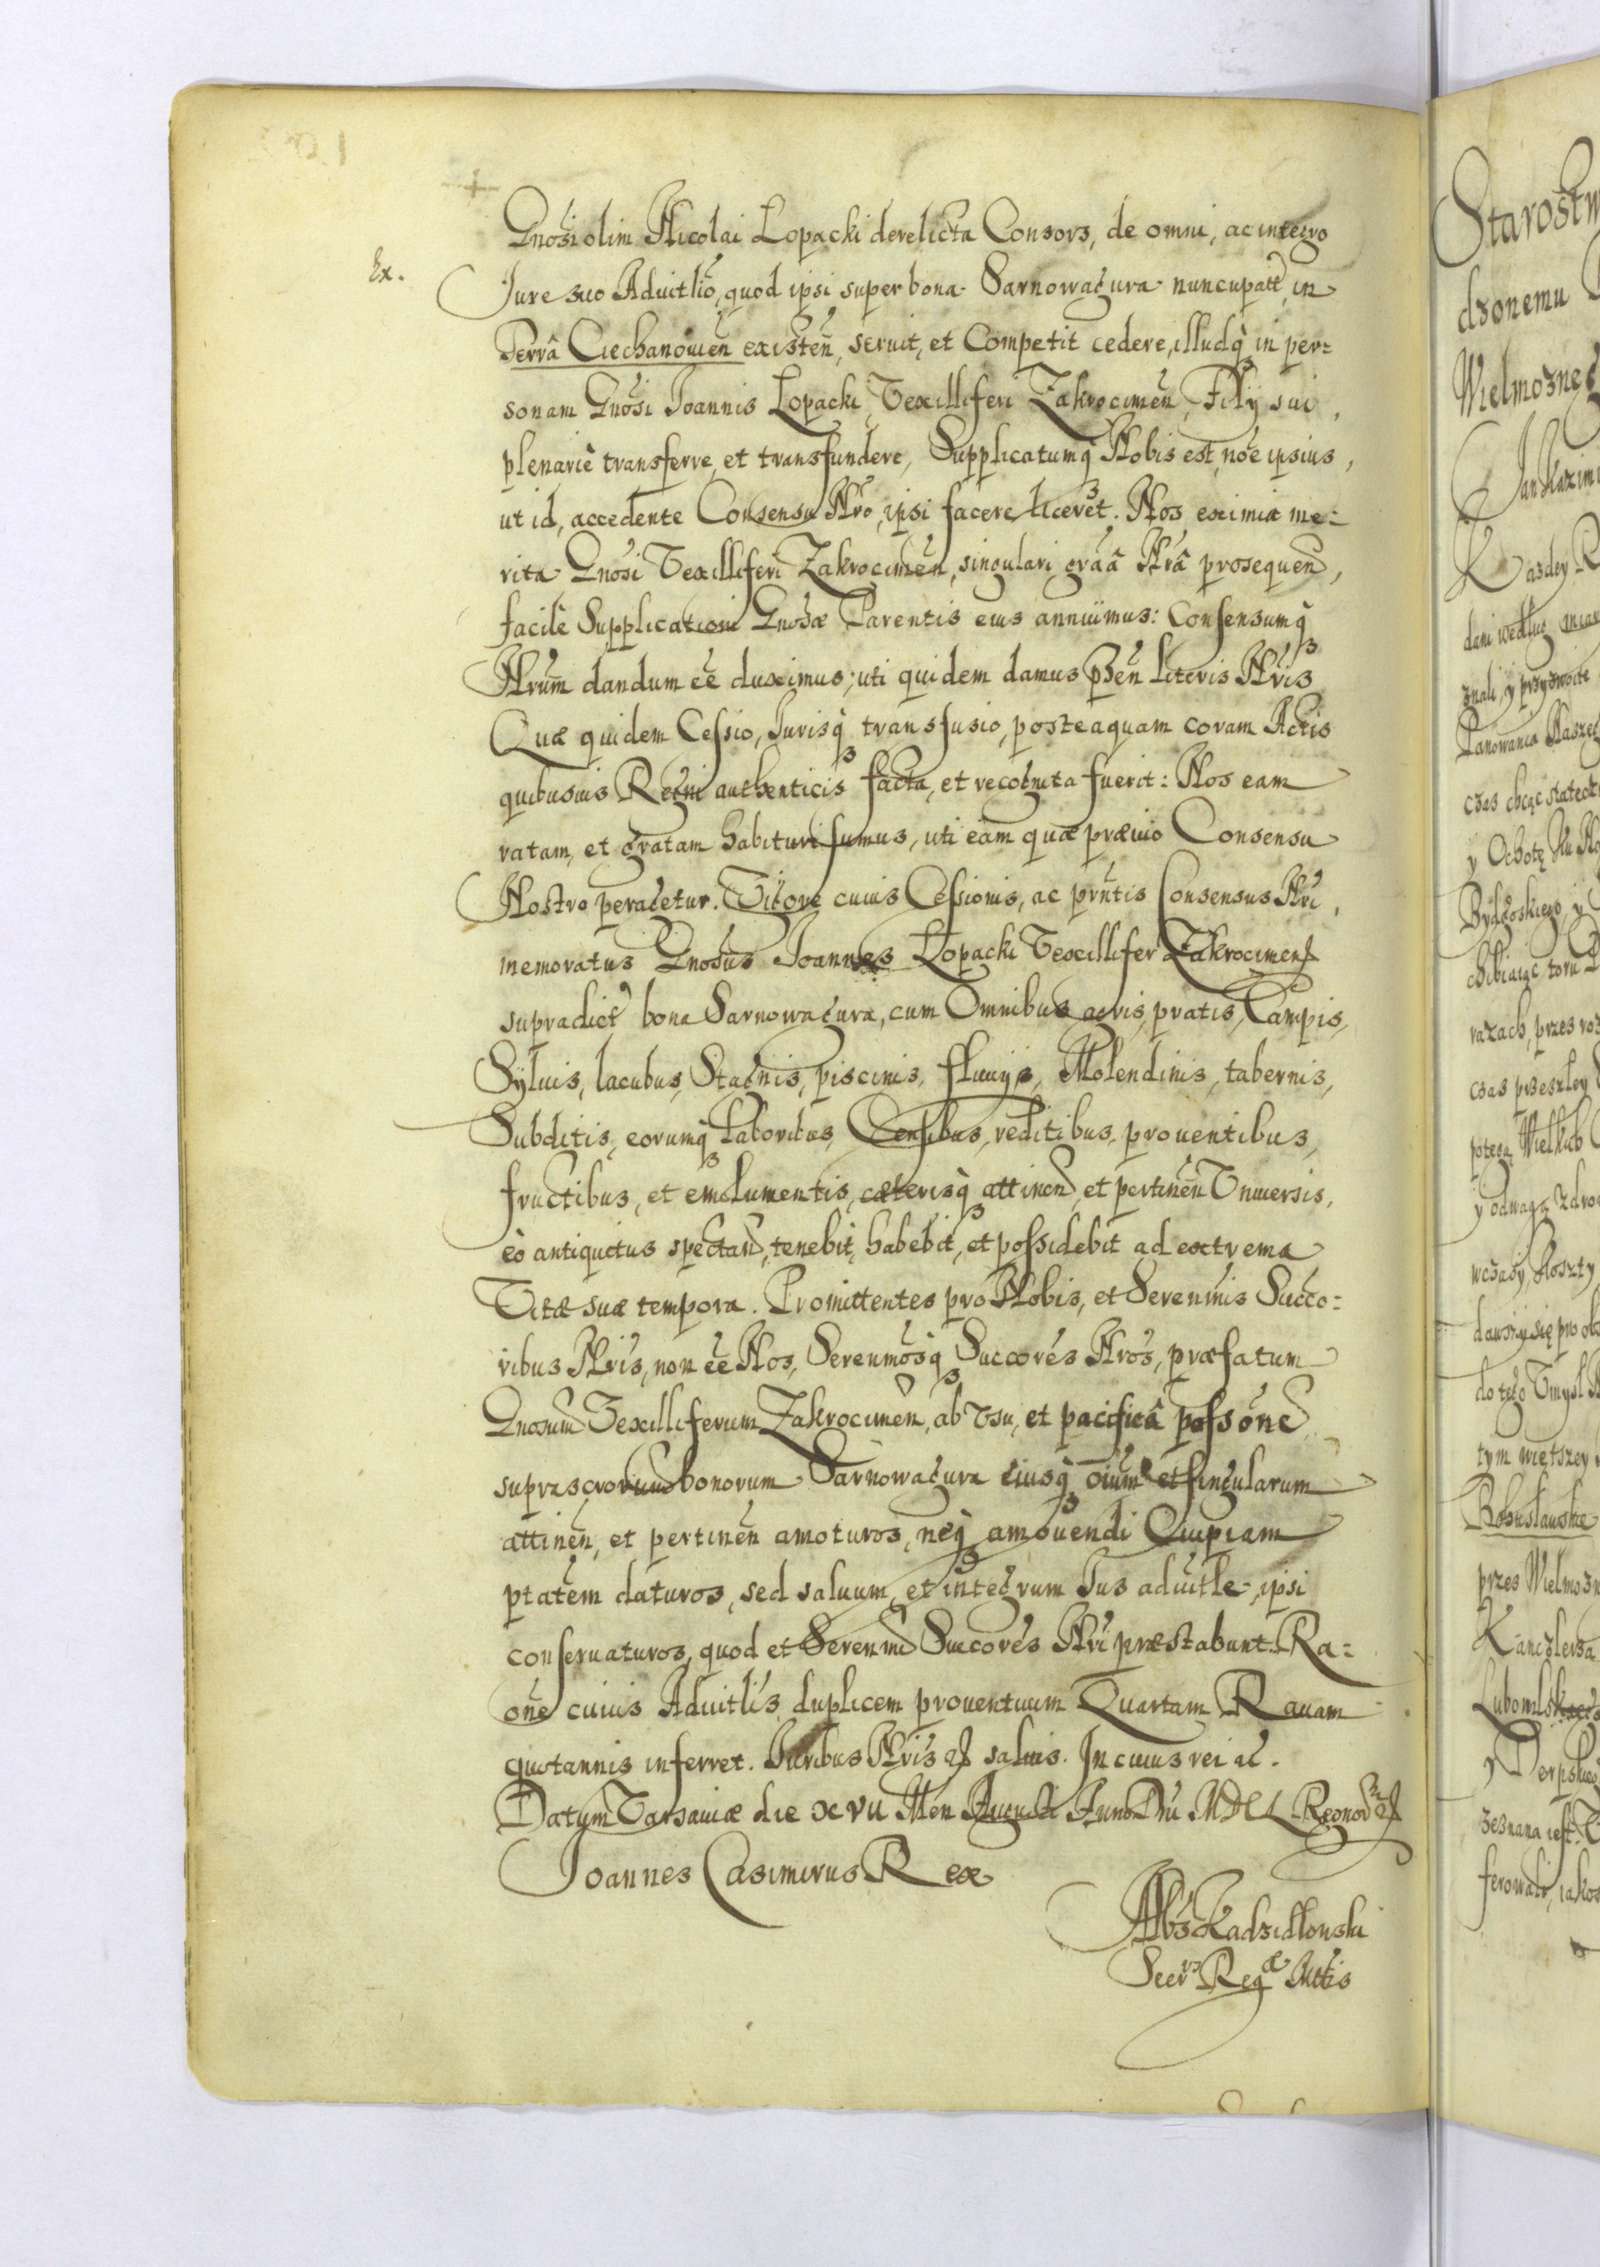 Gnosi olim Nicolai Lopacki derelicta Consors, de omni, ac integro
Ex.
Iure suo Aduitlio, quod ipsi super bona Sarnowagura nuncupatt, in
Terrâ Ciechanouien existen, seruit, et Competit cedere, illudq in per=
sonam Gnosi Ioannis Lopacki Vexilliferi Zakrocimen, Filÿ sui,
plenariè transferre, et transfundere, Supplicatumq Nobis est, noe ipsius,
ut id, accedente Consensu Nro, ipsi facere liceret. Nos eximia me=
rita Gnosi Vexilliferi Zakrocimen, singulari graâ Nrâ prosequen,
facilè Supplicationi Gnosæ Parentis eius annuimus: Consensumq
Nrum dandum ee duximus; uti quidem damus pñen Literis Nris
Quæ quidem Cessio, Iurisq transfusio, posteaquam coram Actis
quibusuis Regni authenticis facta, et recognita fuerit: Nos eam
ratam, et gratam habituri sumus, uti eam quæ præuio Consensu
Nostro peragetur. Vigore cuius Cessionis, ac prntis Consensus Nri,
memoratus Gnosus Ioannes Lopacki Vexillifer Zakrocimen
supradict bona Sarnowagura, cum Omnibus agris, pratis, Campis,
Syluis, lacubus, Stagnis, piscinis, fluuijs, Molendinis, tabernis,
Subditis, eorumq Laboribus, Censibus, reditibus, prouentibus,
fructibus, et emolumentis, cæterisq attinen, et pertinen Vniuersis,
eò antiquitus spectan, tenebit, habebit, et possidebit ad extrema
Vitæ suæ tempora. Promittentes pro Nobis, et Serenmis Succo=
ribus Nris, non ee Nos, Serenmosq Succores Nros, præfatum
Gnosum Vexilliferum Zakrocimen, ab Vsu, et pacificâ possone
suprascrorum bonorum Sarnowagura eiusq oium et singularum
attinen, et pertinen amoturos, neq amouendi Cuipiam
ptatem daturos, sed saluum, et integrum Ius aduitle, ipsi
conseruaturos, quod et Serenmi Succores Nri præstabunt. Ra=
one cuius Aduitlis duplicem prouentuum Quartam Rauam
quotannis inferret. Iuribus Nris salvis. In cuius rei
Datum Varsauiæ die xvii Men Augusti Anno Dni MDCL Regnor
Ioannes Casimirus Rex
Albs Kadzidlowski
Secrus Regæ Mttis
Starostw
dzonemu
Wielmozneg
Jan Kazimi
Kazdey R
dani wedlug
znali, y przyzwoite
Panowania Naszeg
czas chcąc
y Ochotę ku
Bydgoskiego, y
razach, przes roz
czas przeszley
potegą Wielkich
y odwagą zdro
wczasy, Koszty
do tego Vmysl
tym większey
przes Wielmozn
Kanczlerza
Lubomlskieg
zeznana iest
ferowali, iako